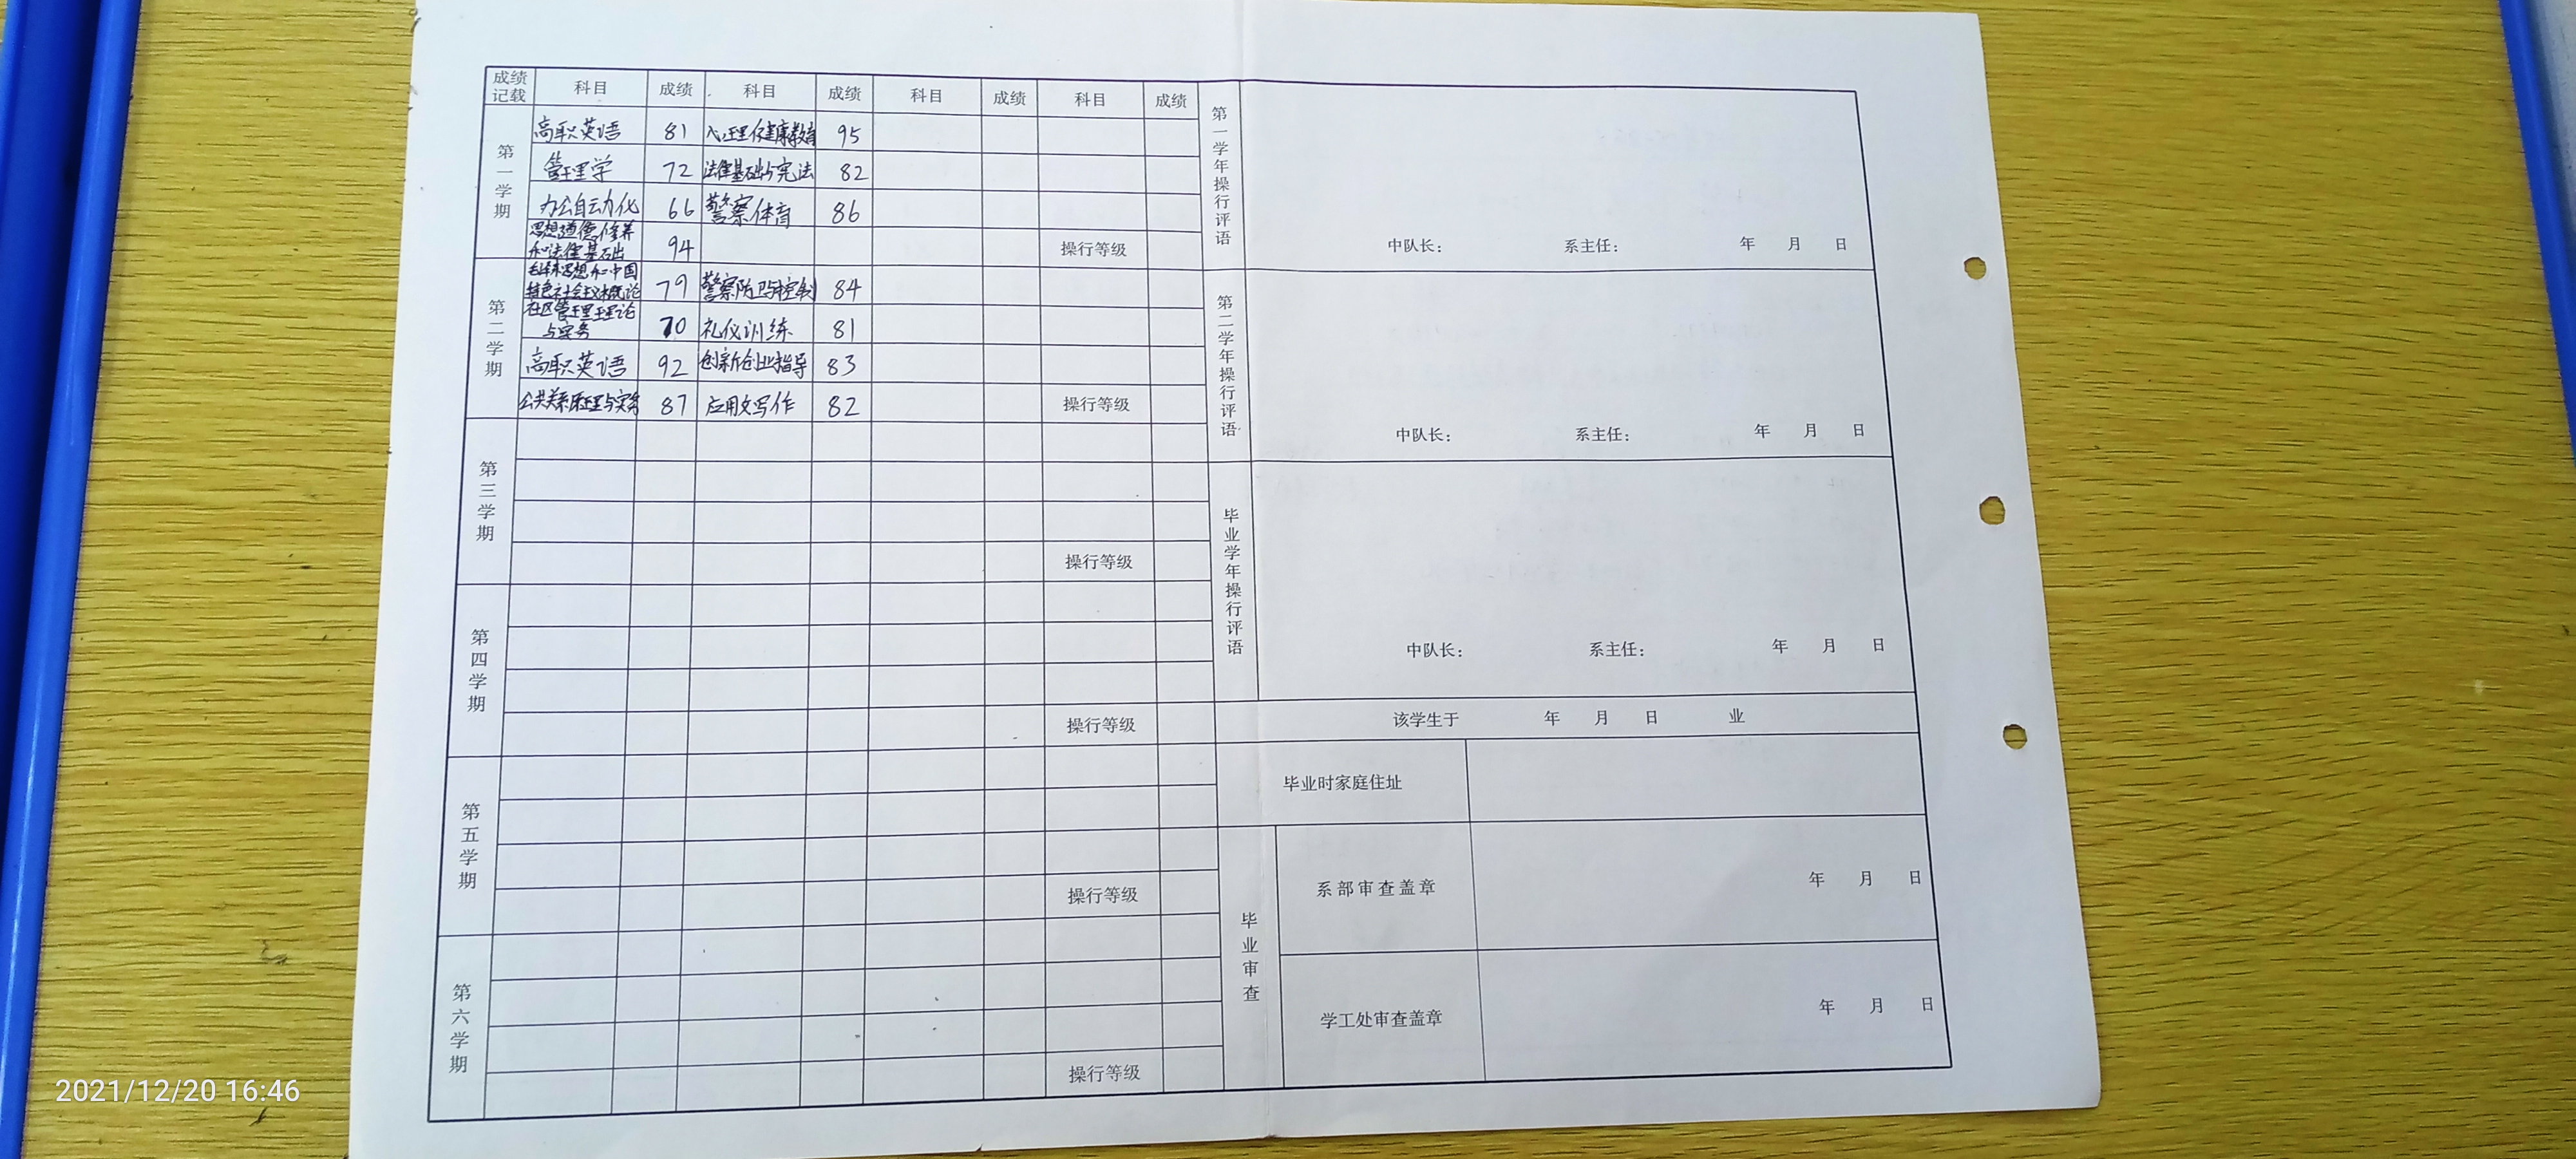 成绩记载 科目 成绩 科目 成绩 科目 成绩 科目 成绩
第一学期
高职英语 81 心理健康教育 95
管理学 72 法律基础与宪法 82
办公自动化 66 警察体育 86
思想道德修养
和法律基础 94 操行等级
第二学期
毛泽东思想和中国
特色社会主义概论 79 警察防卫与控制 84
社区管理理论
与实务 70 礼仪训练 81
高职英语 92 创新创业指导 83
公共关系原理与实务 87 应用文写作 82 操行等级
第三学期
操行等级
第四学期
操行等级
第五学期
操行等级
第六学期
操行等级
第一学年操行评语
中队长： 系主任： 年 月 日
第二学年操行评语
中队长： 系主任： 年 月 日
毕业学年操行评语
中队长： 系主任： 年 月 日
该学生于 年 月 日 业
毕业时家庭住址
毕业审查
系部审查盖章 年 月 日
学工处审查盖章 年 月 日
2021/12/20 16:46